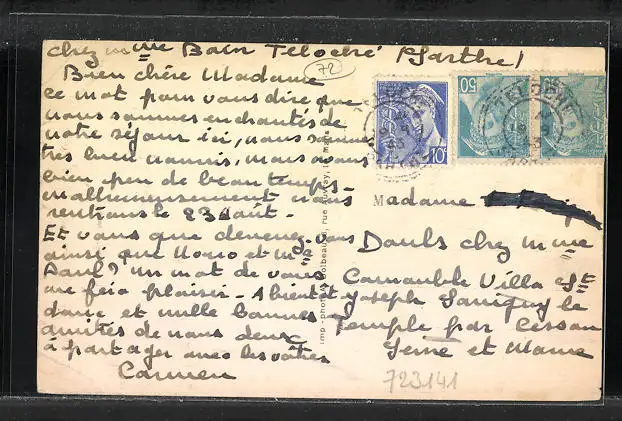 chez mme Bain Teloché (Sarthe)
72
Bien chère Madame
ce mot pour vous dire que
nous sommes enchantés de
notre séjour ici, nous sommes
tres bien nourris, mais avons
bien peu de beau temps -
malheureusement nous
rentrons le 23 Août -
Et vous que devenez-vous
ainsi que Nono et mr
Paul? un mot de vous
me fera plaisir - A bientôt
donc et mille bonnes
amitiés de nous deux
à partager avec les vôtres
Carmen
50
10
TELOCHE
imp - phot
Madame
Pauls chez mme
Camauble Villa St
Joseph Savigny le
Temple par Cesson
Seine et Marne
723141